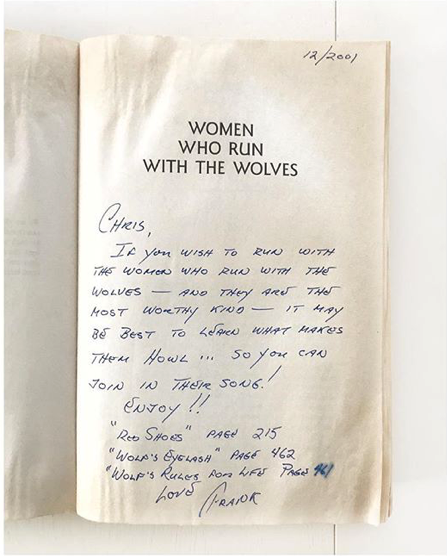 12/2001
WOMEN
WHO RUN
WITH THE WOLVES
CHRIS,
IF YOU WISH TO RUN WITH
THE WOMEN WHO RUN WITH THE
WOLVES — AND THEY ARE THE
MOST WORTHY KIND — IT MAY
BE BEST TO LEARN WHAT MAKES
THEM HOWL ... SO YOU CAN
JOIN IN THEIR SONG!
ENJOY!!
"RED SHOES" PAGE 215
"WOLF'S EYELASH" PAGE 462
"WOLF'S RULES FOR LIFE PAGE 461
LOVE FRANK